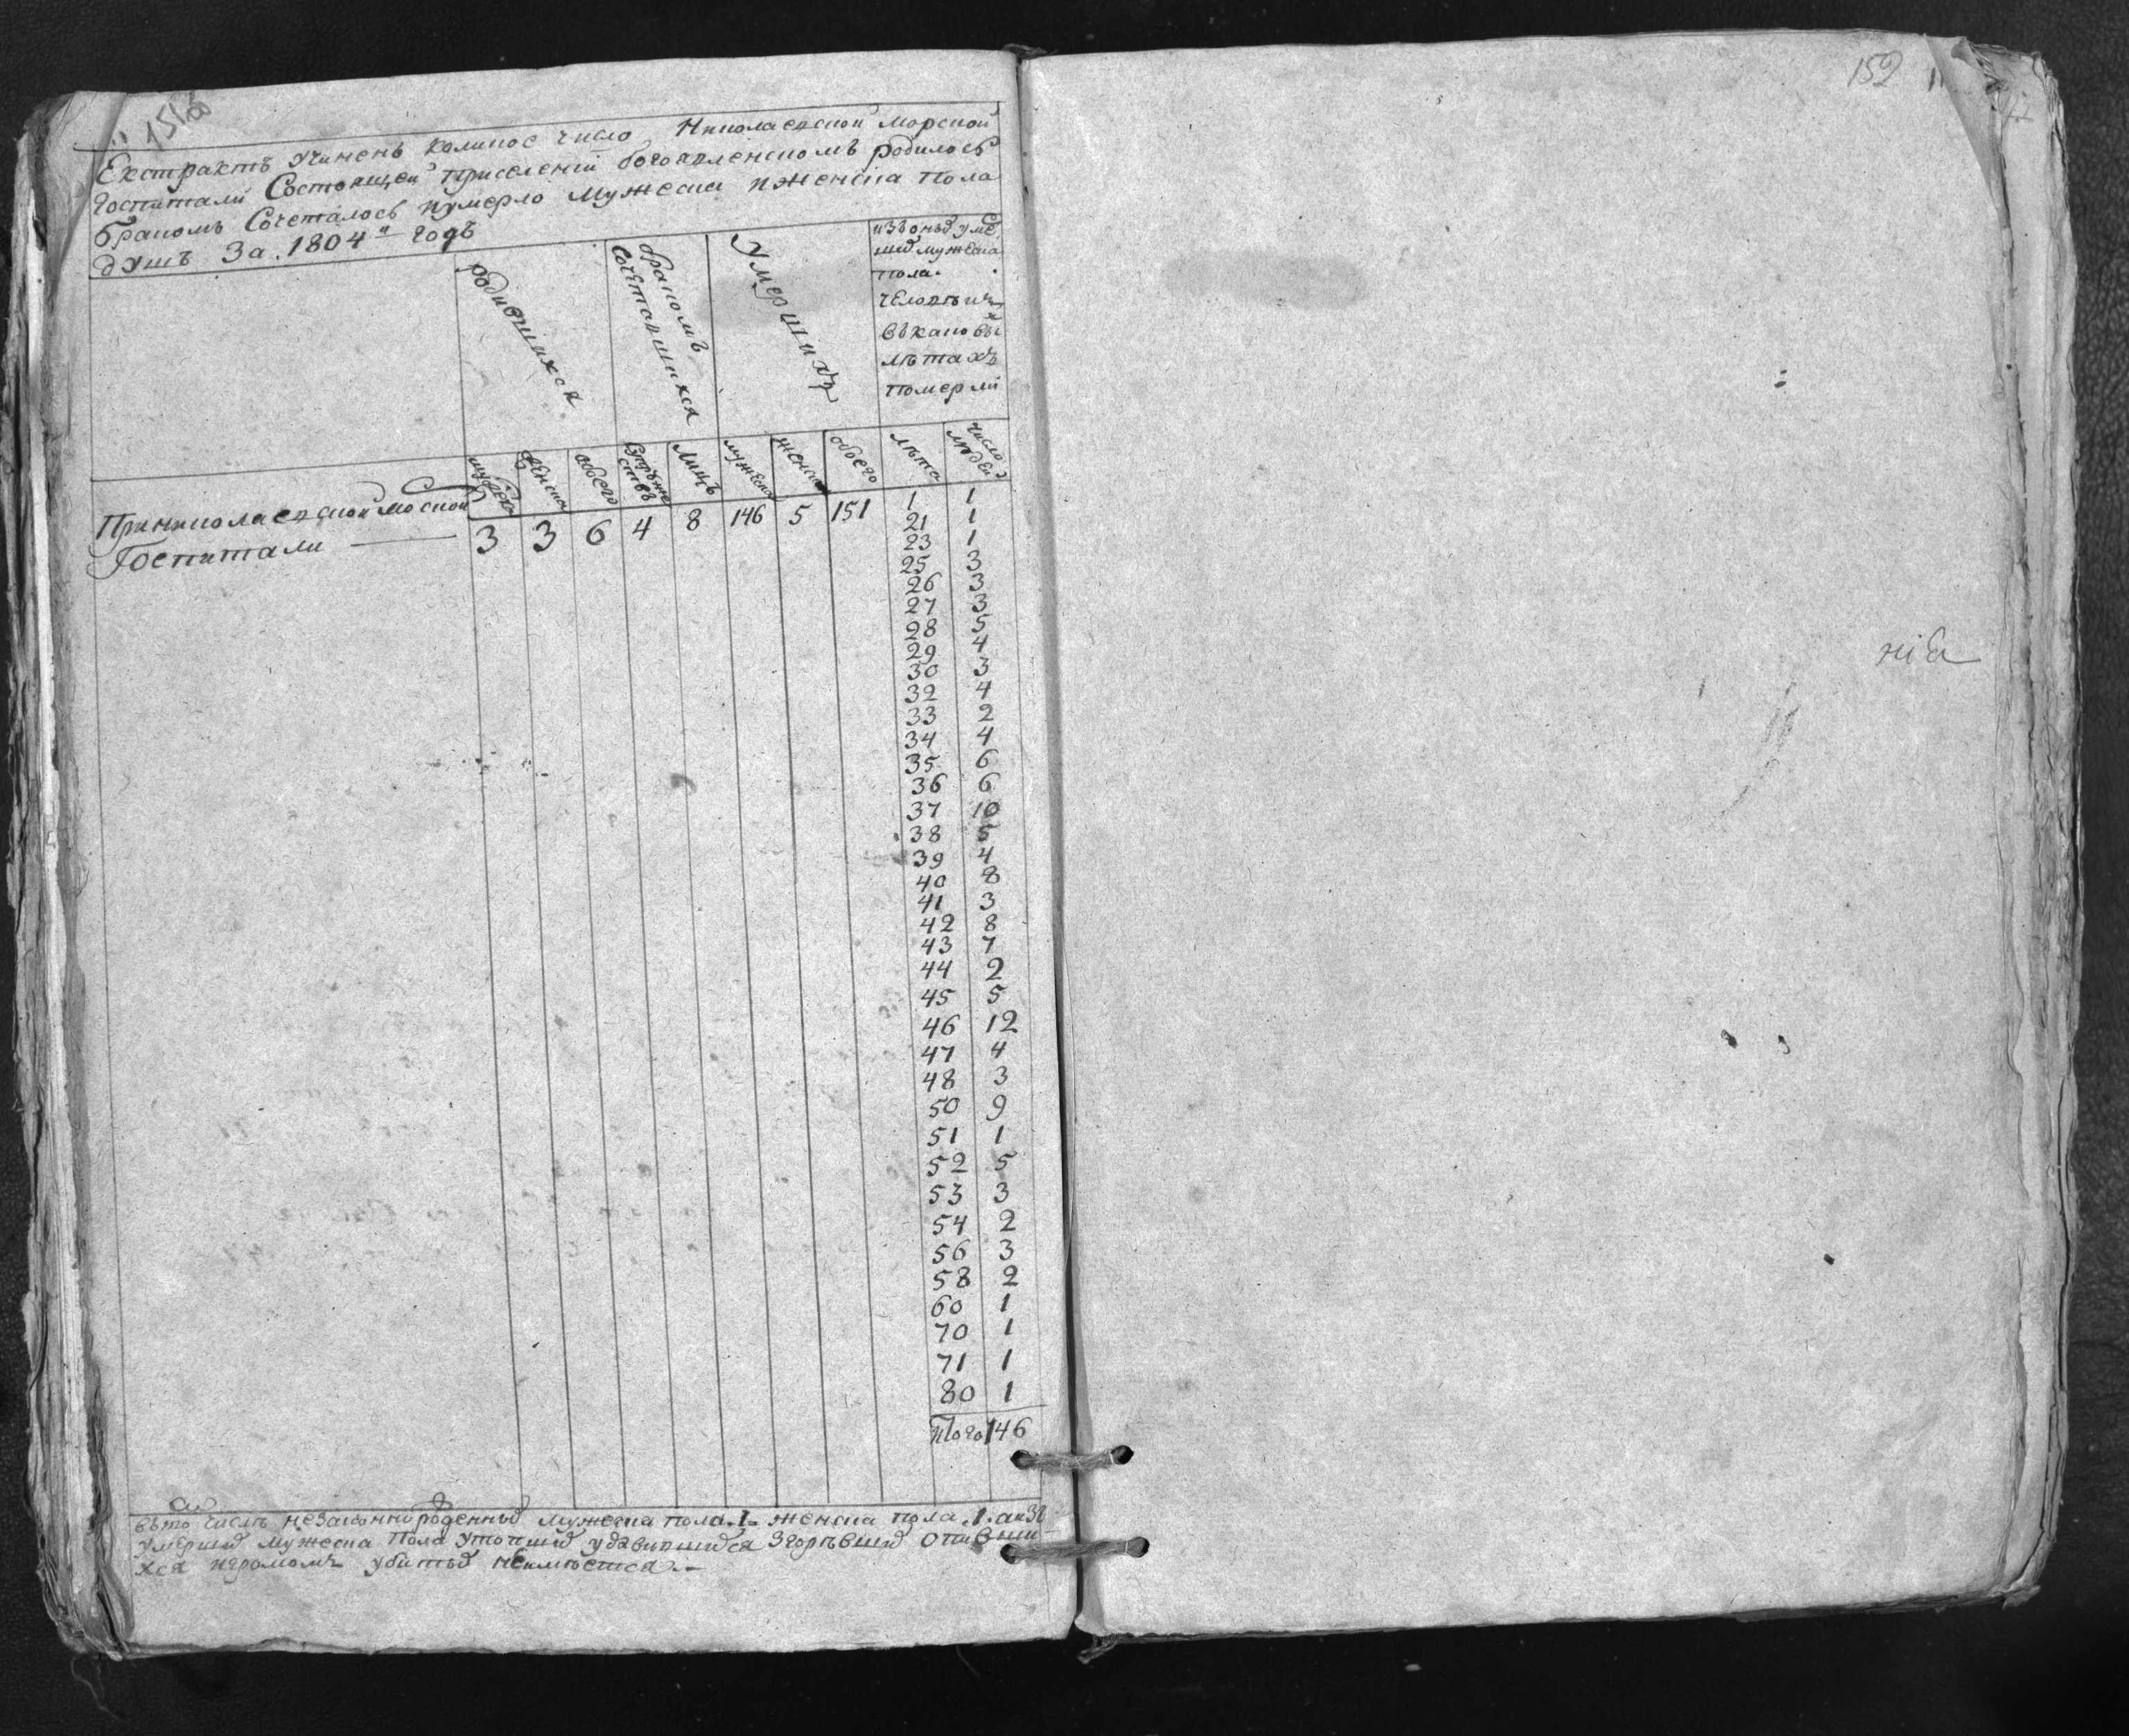 151 об
Екстрактъ учиненъ коликое число Николаевской морской
Госпитали Состоящей приселеніи богоявленскомъ родилось
бракомъ Сочеталось иумерло Мужеска иженска пола
душъ За 1804й годъ
родившихся
бракомъ
Сочетавшихся
Умершихъ
изъоных уме
ших мужеска
пола.
человѣкъ
въкаковы
лѣтахъ
померли
мужеска
женска
обоего
Супруже
ствъ
лицъ
мужеска
женска
обоего
лѣта
число
людей
Приниколаевской мо ской
Госпитали
3 3 6 4 8 146 5 151
1 1
21 1
23 1
25 3
26 3
27 3
28 5
29 4
30 3
32 4
33 2
34 4
35 6
36 6
37 10
38 5
39 4
40 8
41 3
42 8
43 7
44 2
45 5
46 12
47 4
48 3
50 9
51 1
52 5
53 3
54 2
56 3
58 2
60 1
70 1
71 1
80 1
Итого 146
въто числѣ незаконнорожденных мужеска пола .1. женска пола .1. аизъ
умерших мужеска пола утопших удавившихся Згорѣвших опивши
хся игромомъ убитых неимѣется.
152